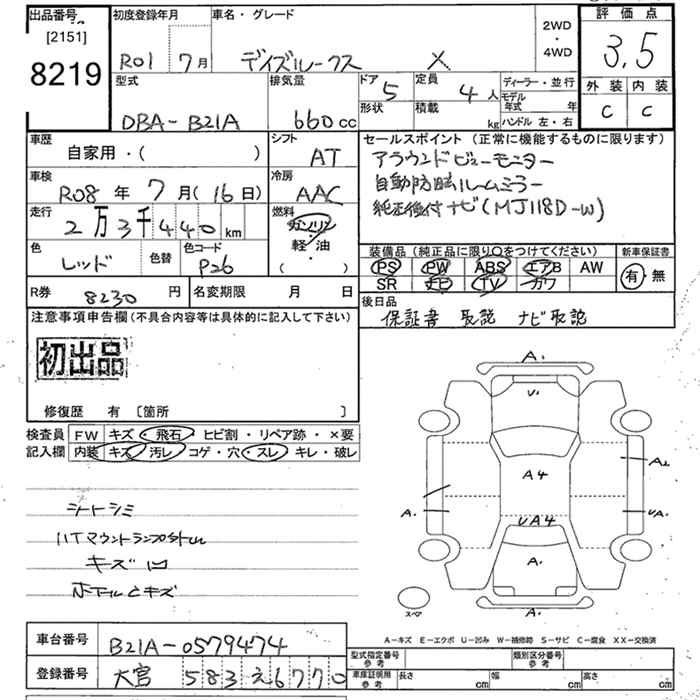 出品番号 初度登録年月 車名・グレード 2WD・4WD 評価点
[2151]
8219 R01 7月 デイズルークス X 3.5
型式 排気量 ドア 5 定員 4人 ディーラー・並行 外装 内装
形状 積載 kg モデル年式 年 C C
DBA-B21A 660cc ハンドル 左・右
車歴 自家用・( ) シフト AT セールスポイント (正常に機能するものに限ります)
アラウンドビューモニター
車検 R08年 7月(16日) 冷房 AAC 自動防眩ルームミラー
純正後付ナビ(MJ118D-W)
走行 2万3千440km 燃料 ガソリン
軽・油
( )
色 レッド 色替 色コード P26 装備品 (純正品に限り○をつけてください) 新車保証書
PS PW ABS エアB AW 有・無
SR ナビ TV カワ
R券 8230円 名変期限 月 日 後日品
保証書 取説 ナビ取説
注意事項申告欄(不具合内容等は具体的に記入して下さい)
初出品
修復歴 有 〔箇所 〕
検査員記入欄 FW キズ・飛石・ヒビ割・リペア跡・×要
内装 キズ・汚レ・コゲ・穴・スレ・キレ・破レ
シートシミ
キズ凹
A.
V.
A4
A2
A.
UA4
UA.
A.
A.
スペア
A-キズ E-エクボ U-凹み W-補修跡 S-サビ C-腐食 XX-交換済
車台番号 B21A-0579474
登録番号 大宮 583 え 6770
型式指定番号 参考 類別区分番号 参考
車庫証明用 参考 長さ cm 幅 cm 高さ cm